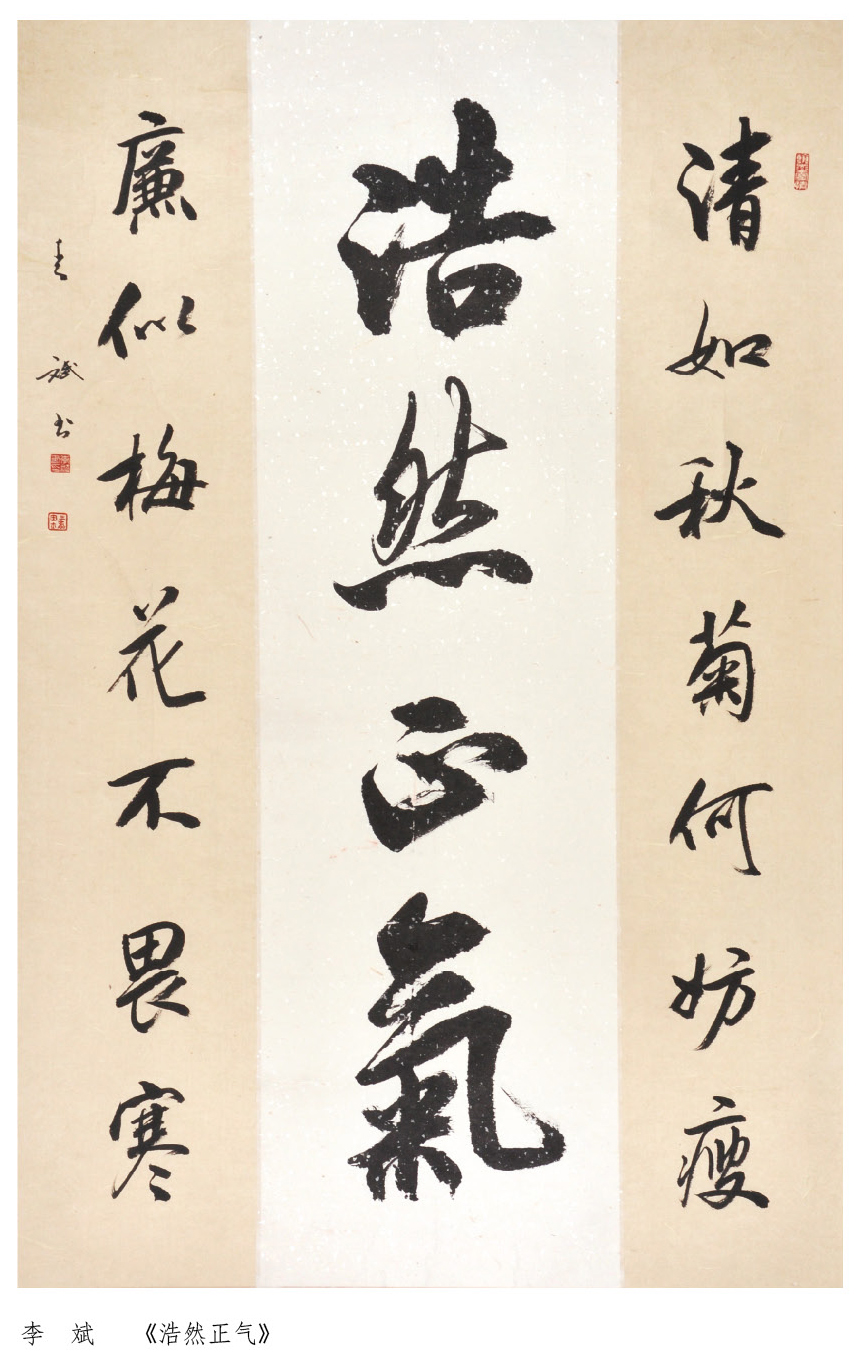 清如秋菊何妨瘦
浩然正氣
廉似梅花不畏寒
李斌书
李 斌 《浩然正气》